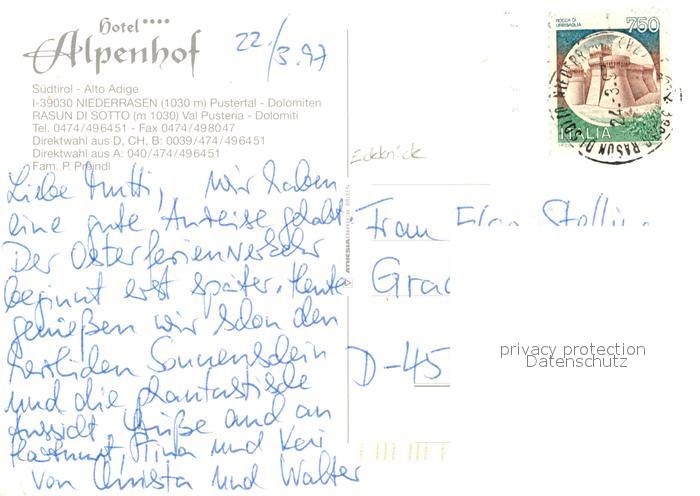 Hotel ****
Alpenhof
22/3.97
Südtirol - Alto Adige
I-39030 NIEDERRASEN (1030 m) Pustertal - Dolomiten
RASUN DI SOTTO (m 1030) Val Pusteria - Dolomiti
Tel. 0474/496451 - Fax 0474/498047
Direktwahl aus D, CH, B: 0039/474/496451
Direktwahl aus A: 040/474/496451
Fam. P. Preindl
Liebe Mutti, wir haben
eine gute Anreise gehabt.
Der Osterferienverkehr
beginnt erst später. Heute
genießen wir schon den
herrlichen Sonnenschein
und die phantastische
Aussicht. Grüße auch an
Hartmut, Tina und Kai
von Christa und Walter
Eckknick
ATHESIA
ROCCA DI
URBISAGLIA
750
ITALIA
RASUN DI SOTTO
Frau Elga
D-45
privacy protection
Datenschutz